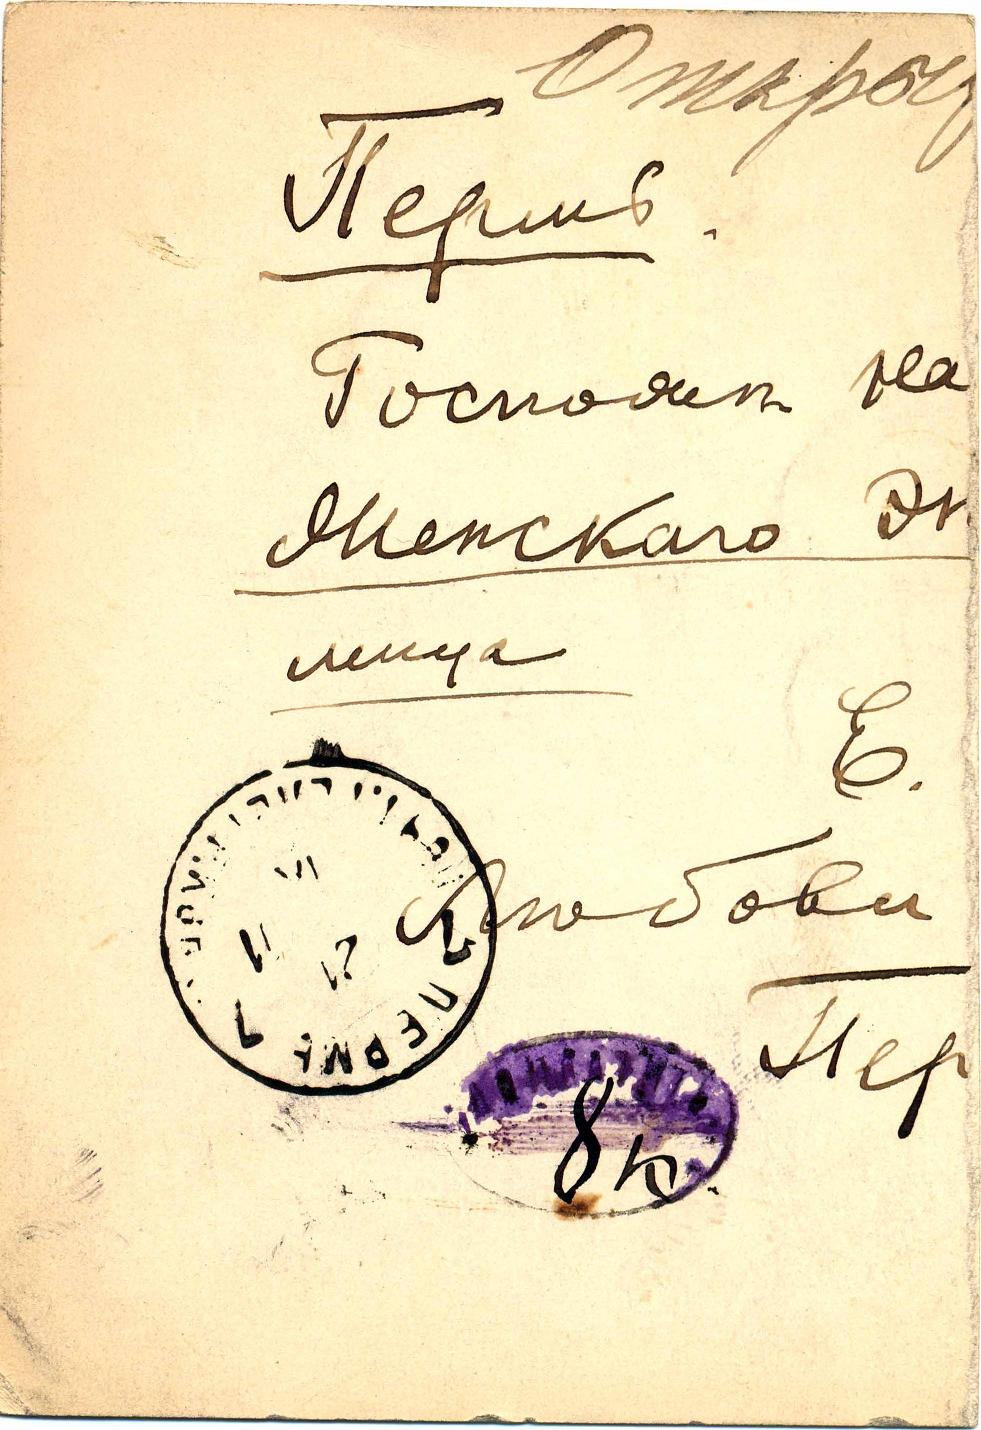 Откры
Пермь.
Госпоже На
Женскаго Эп
лища
Е.
Любови
Пер
ПЕРМЬ
21
11
8 к.